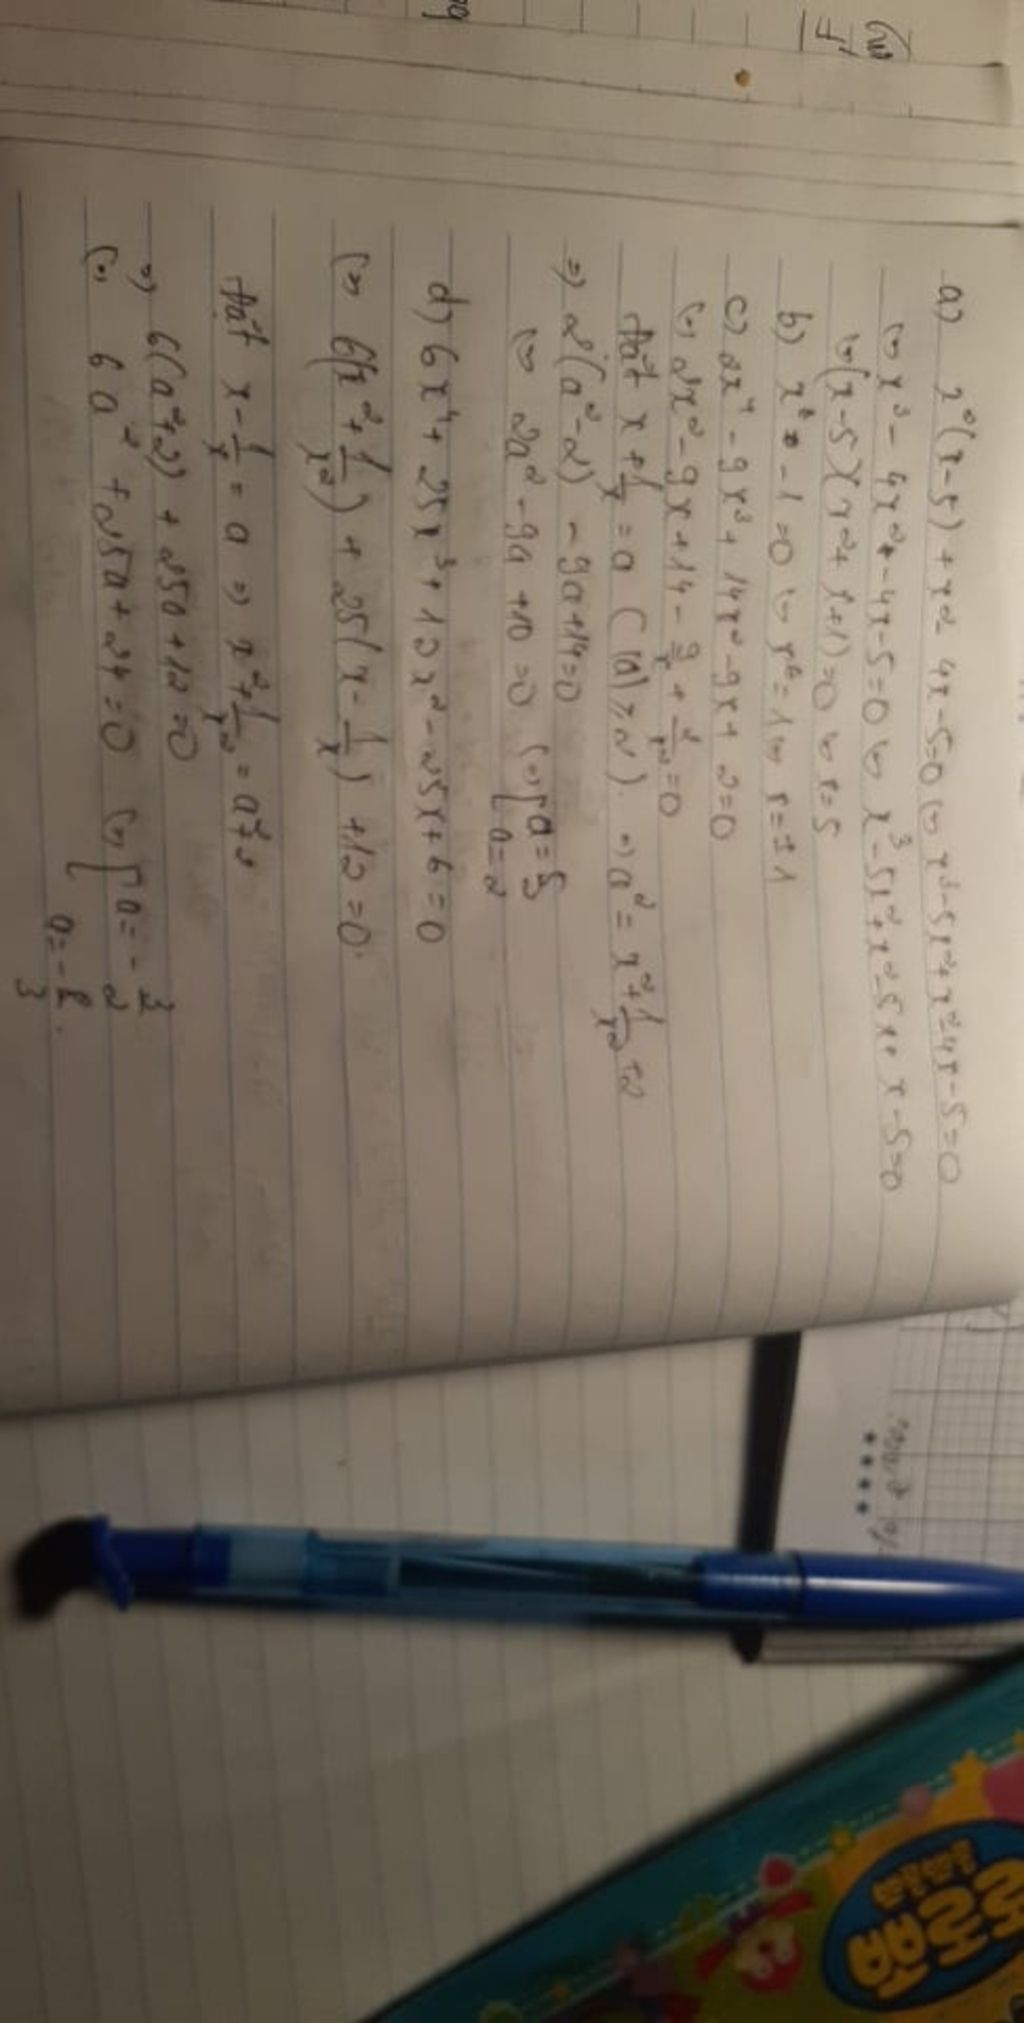 a) x²(x-5) + x² - 4x - 5 = 0 (=) x³ - 5x² + x² - 4x - 5 = 0
(=) x³ - 4x² - 4x - 5 = 0 (=) x³ - 5x² + x² - 5x + x - 5 = 0
(=) (x-5)(x² + x + 1) = 0 (=) x = 5
b) - 1 = 0 (=) = 1 (=) x = ±1
c) 2x⁴ - 9x³ + 14x² - 9x + 2 = 0
(=) 2x² - 9x + 14 - 9/x + 2/x² = 0
Đặt x + 1/x = a (|a| ≥ 2). => a² = x² + 1/x² + 2
=> 2(a² - 2) - 9a + 14 = 0
(=) 2a² - 9a + 10 = 0 (=) [ a = 5/2
a = 2
d) 6x⁴ + 25x³ + 12x² - 25x + 6 = 0
(=) 6(x² + 1/x²) + 25(x - 1/x) + 12 = 0.
Đặt x - 1/x = a => x² + 1/x² = a² + 2
=> 6(a² + 2) + 25a + 12 = 0
(=) 6a² + 25a + 24 = 0 (=) [ a = - 3/2
a = - 8/3.